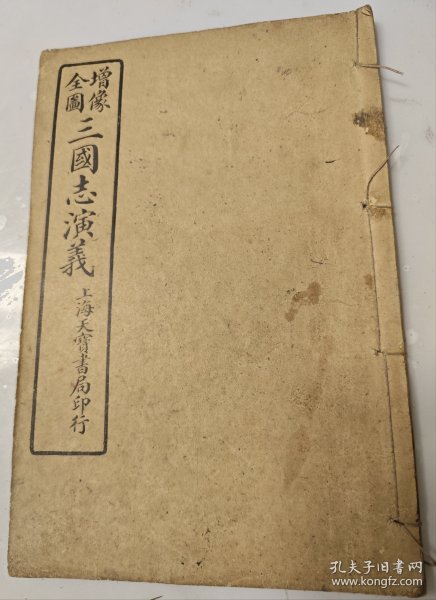 增像全圖三國志演義
上海天寶書局印行
孔夫子旧书网
www.kongfz.com